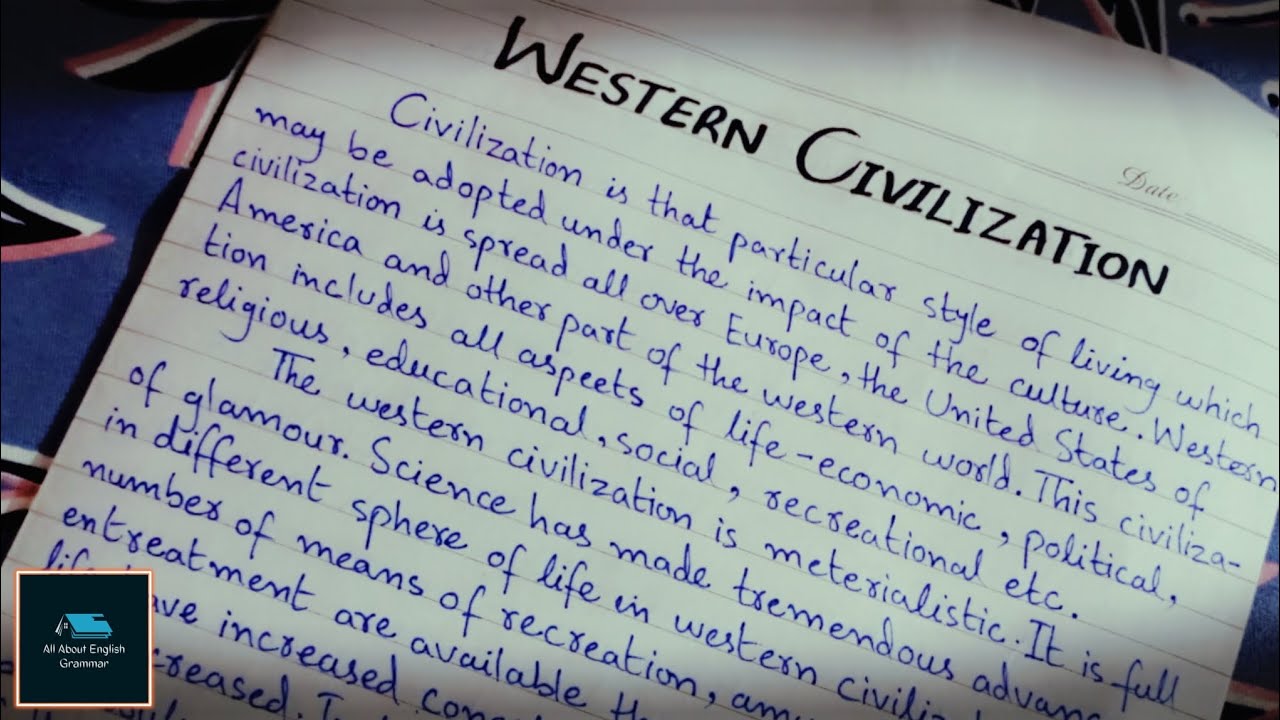 WESTERN CIVILIZATION
Date
Civilization is that particular style of living which
may be adopted under the impact of the culture. Western
civilization is spread all over Europe, the United States of
America and other part of the western world. This civiliza-
tion includes all aspeets of life - economic, political,
religious, educational, social, recreational etc.
The western civilization is meterialistic. It is full
of glamour. Science has made tremendous advanc
in different sphere of life in western civiliz
number of means of recreation, amu
entreatment are available
increased
creased.
All About English
Grammar